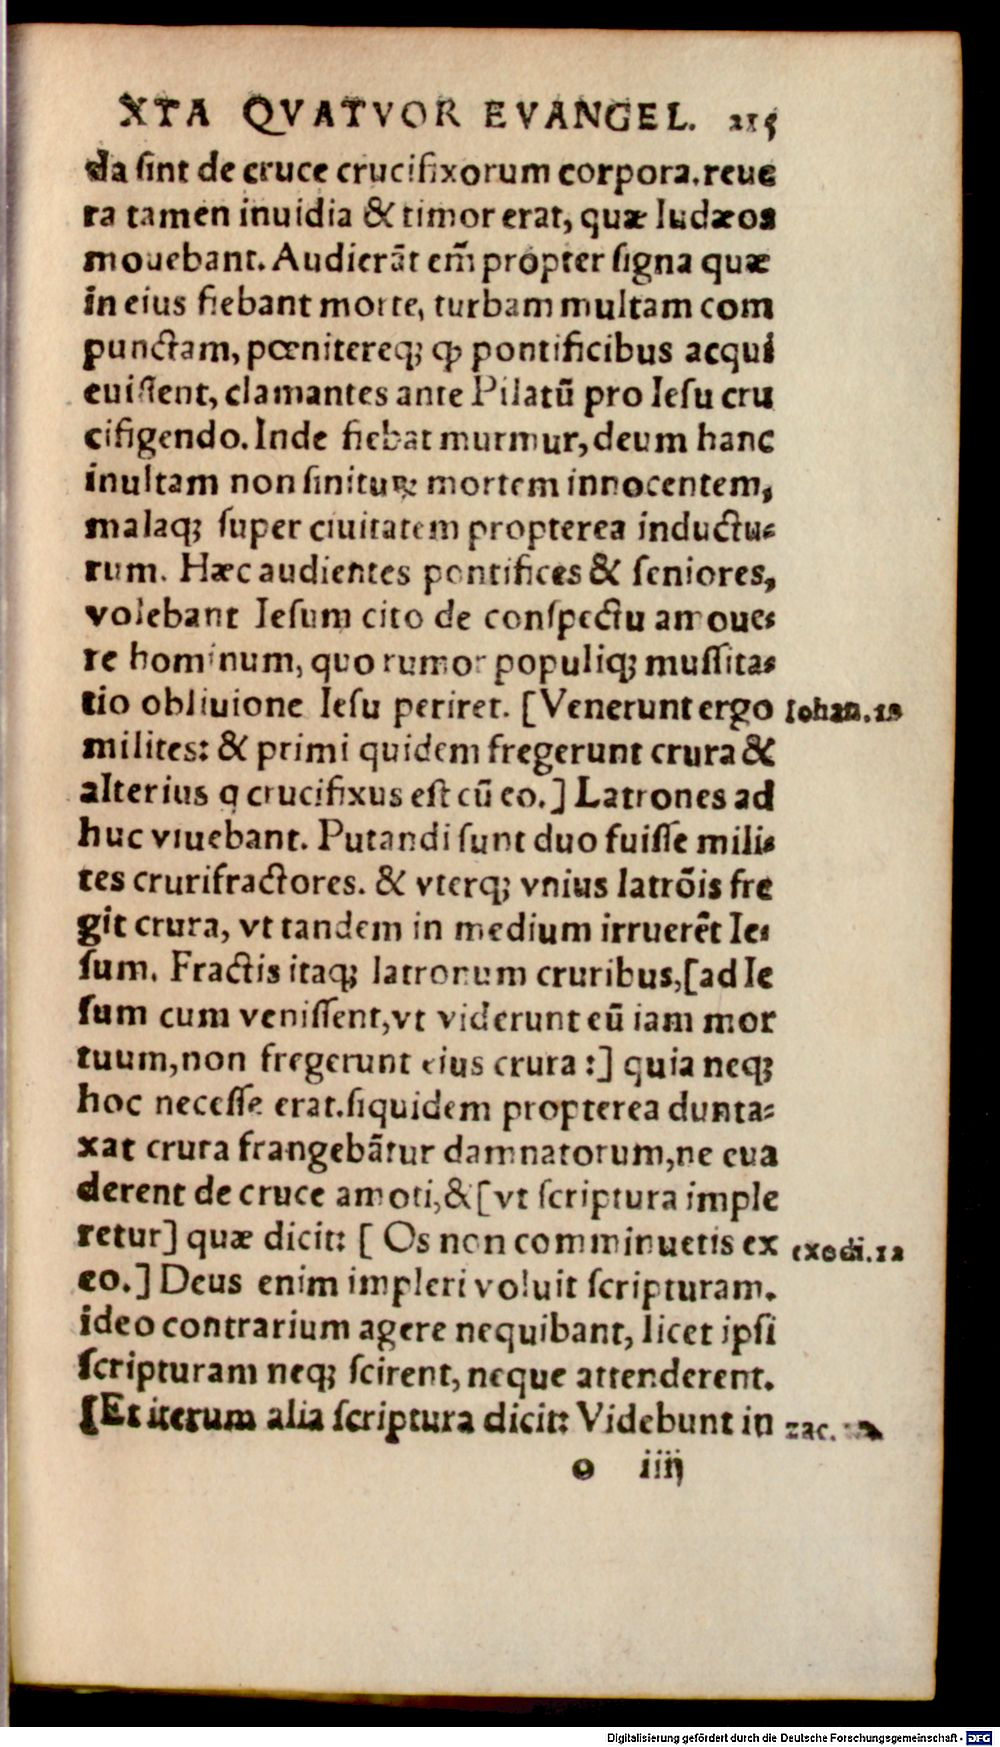 XTA QVATVOR EVANGEL. 215
da sint de cruce crucifixorum corpora. reue
ra tamen inuidia & timor erat, quæ Iudæos
mouebant. Audierāt em̄ propter signa quæ
in eius fiebant morte, turbam multam com
punctam, pœnitereq; ꝙ pontificibus acqui
euissent, clamantes ante Pilatū pro Iesu cru
cifigendo. Inde fiebat murmur, deum hanc
inultam non siniturꝫ mortem innocentem,
malaq; super ciuitatem propterea inductu-
rum. Hæc audientes pontifices & seniores,
volebant Iesum cito de conspectu amoue-
re hominum, quo rumor populiq; mussita-
tio obliuione Iesu periret. [Venerunt ergo
Iohan. 19
milites: & primi quidem fregerunt crura &
alterius q crucifixus est cū eo.] Latrones ad
huc viuebant. Putandi sunt duo fuisse mili-
tes crurifractores. & vterq; vnius latrōis fre
git crura, vt tandem in medium irruerēt Ie-
sum. Fractis itaq; latronum cruribus, [ad Ie
sum cum venissent, vt viderunt eū iam mor
tuum, non fregerunt eius crura:] quia neq;
hoc necesse erat. siquidem propterea dunta-
xat crura frangebātur damnatorum, ne eua
derent de cruce amoti, & [vt scriptura imple
retur] quæ dicit: [ Os non comminuetis ex
exodi. 12
eo.] Deus enim impleri voluit scripturam.
ideo contrarium agere nequibant, licet ipsi
scripturam neq; scirent, neque attenderent.
[Et iterum alia scriptura dicit: Videbunt in
zac.
o iiij
Digitalisierung gefördert durch die Deutsche Forschungsgemeinschaft - DFG